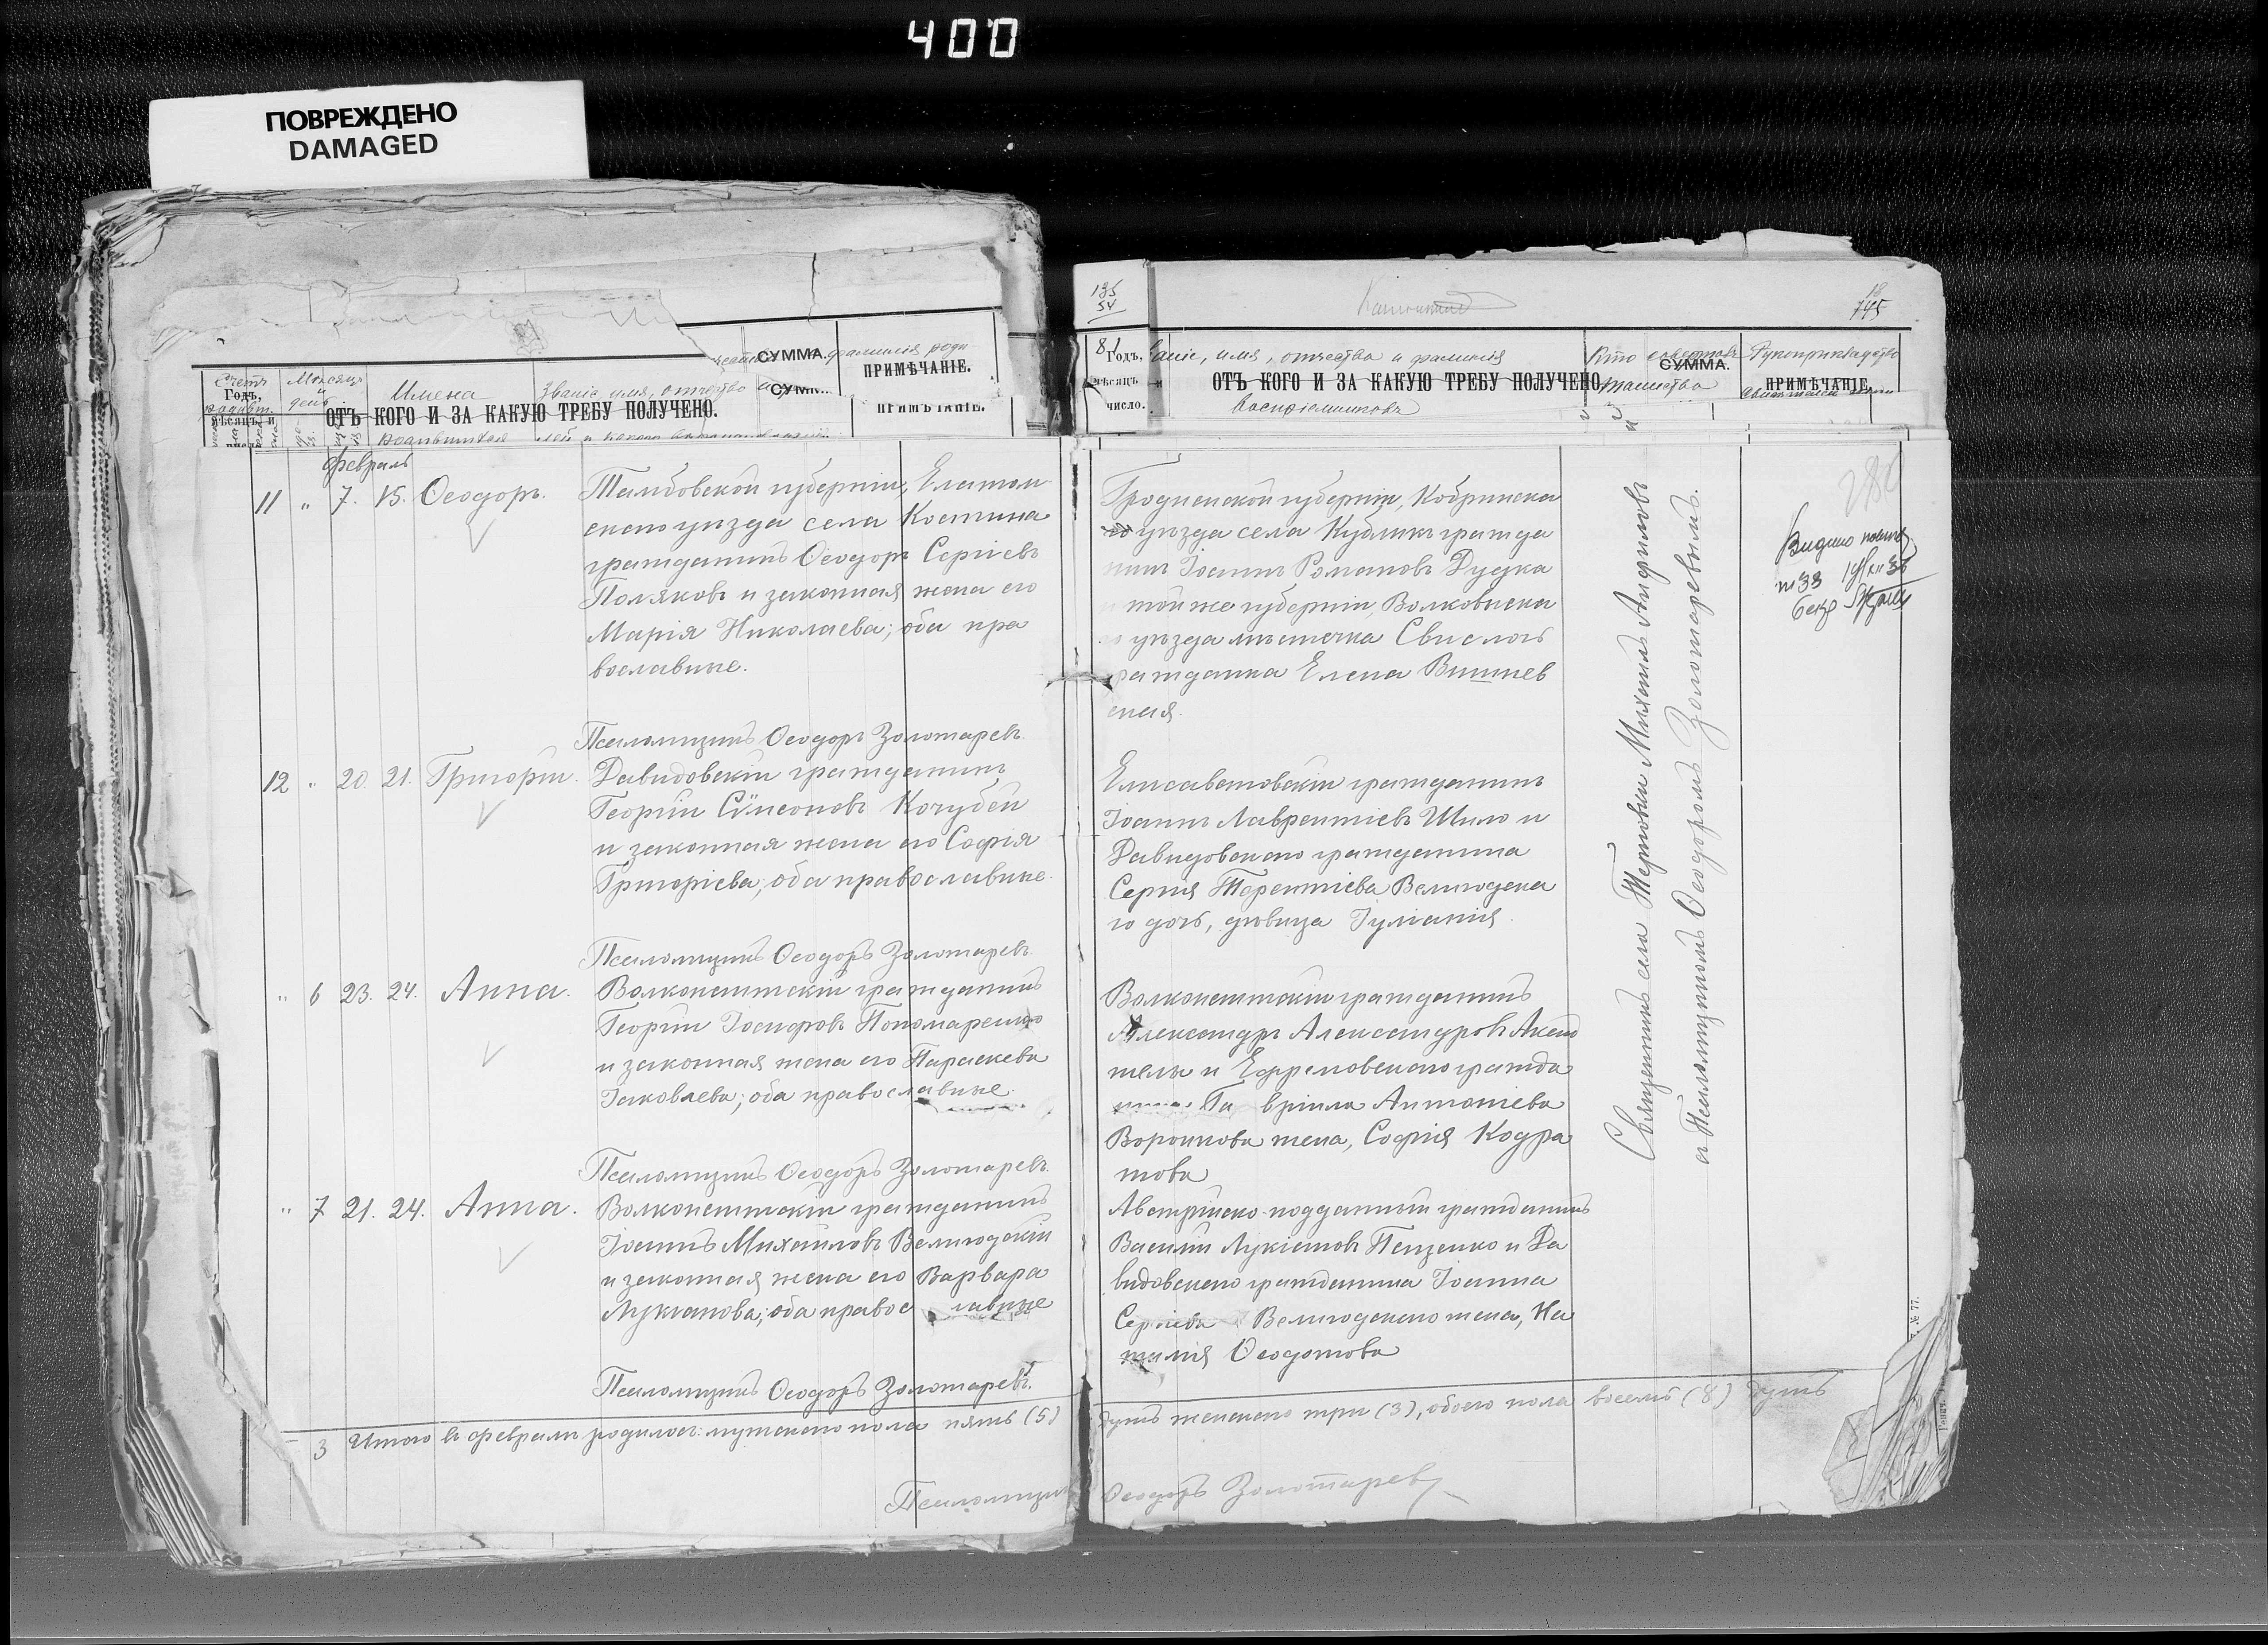 400
ПОВРЕЖДЕНО
DAMAGED
СУММА. фамилія роди
ПРИМѢЧАНІЕ.
Счетъ
Мѣсяцъ
и
день
Имена
Званіе имя, отчество и
СУММ
Годъ,
мѣсяцъ и
ОТЪ КОГО И ЗА КАКУЮ ТРЕБУ ПОЛУЧЕНО.
ПРИМѢЧАНІЕ.
родившихся
Февраль
11 " 7. 15. Ѳеодоръ.
Тамбовской губерніи, Елатом
скаго уѣзда села Костина
гражданинъ Ѳеодоръ Сергіевъ
Поляковъ и законная жена его
Марія Николаева; оба пра
вославные.
Псаломщикъ Ѳеодоръ Золотаревъ.
12 " 20. 21. Григорій.
Давидовскій гражданинъ
Георгій Сѵмеоновъ Кочубей
и законная жена его Софія
Григоріева; оба православные.
Псаломщикъ Ѳеодоръ Золотаревъ
" 6 23. 24. Анна.
Волконештскій гражданинъ
Георгій Іосифовъ Пономаренко
и законная жена его Параскева
Іаковлева; оба православные.
Псаломщикъ Ѳеодоръ Золотаревъ.
" 7 21. 24. Анна.
Волконештскій гражданинъ
Іоаннъ Михаиловъ Великодскій
и законная жена его Варвара
Лукианова; оба правос лавные
Псаломщикъ Ѳеодоръ Золотаревъ.
3 Итого въ февралѣ родилось: мужескаго пола пять (5)
Псаломщикъ
135
54
195
8
Годъ,
мѣсяцъ и
число.
аніе, имя, отчество и фамилія
ОТЪ КОГО И ЗА КАКУЮ ТРЕБУ ПОЛУЧЕНО.
воспріемниковъ
Кто совершалъ
СУММА.
таинство
Рукоприкладство
ПРИМѢЧАНІЕ.
Гродненской губерніи, Кобринска
го уѣзда села Кубликъ гражда
нинъ Іоаннъ Романовъ Дудка
и той же губерніи, Волковыска
го уѣзда мѣстечка Свислочь
гражданка Елена Вишнев
ская.
Елисаветовскій гражданинъ
Іоаннъ Лаврентіевъ Шило и
Давидовскаго гражданина
Сергія Терентіева Великодска
го дочь, дѣвица Іуліанія.
Волконештскій гражданинъ
Александръ Александровъ Аксен
тели и Ефремовскаго гражда
нина Га вріила Антоніева
Воронкова жена, Софія Кодра
това
Австрійско-подданный гражданинъ
Василій Лукіановъ Пензенко и Да
видовскаго гражданина Іоанна
Сергіева Великодскаго жена, На
талія Ѳеодотова
Священникъ села Терновки Михаилъ Анфимовъ
съ Псаломщикомъ Ѳеодоромъ Золотаревымъ.
№ 77.
душъ женскаго три (3), обоего пола восемь (8) душъ
Ѳеодоръ Золотаревъ